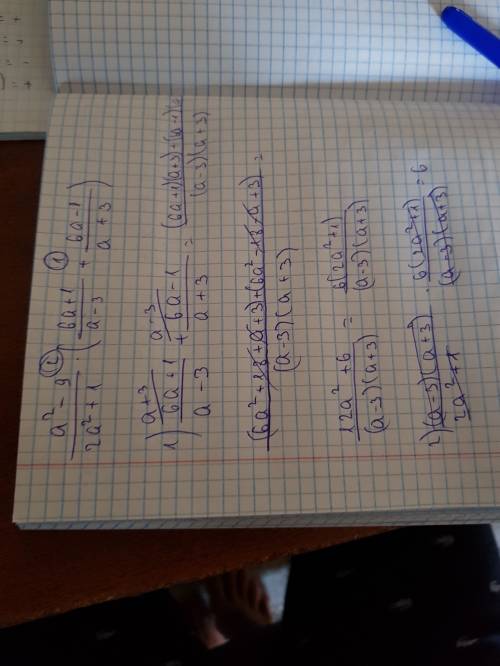 (a² - 9)/(2a² + 1) · ((6a + 1)/(a - 3) + (6a - 1)/(a + 3))
1) (6a + 1)/(a - 3) + (6a - 1)/(a + 3) = ((6a + 1)(a + 3) + (6a - 1)(a
(a - 3)(a + 3)
(6a² + 18 + a + 3) + (6a² - 18 - a + 3)/(a - 3)(a + 3) =
(12a² + 6)/((a - 3)(a + 3)) = 6(2a² + 1)/((a - 3)(a + 3))
2) (a - 3)(a + 3)/(2a² + 1) · 6(2a² + 1)/((a - 3)(a + 3)) = 6